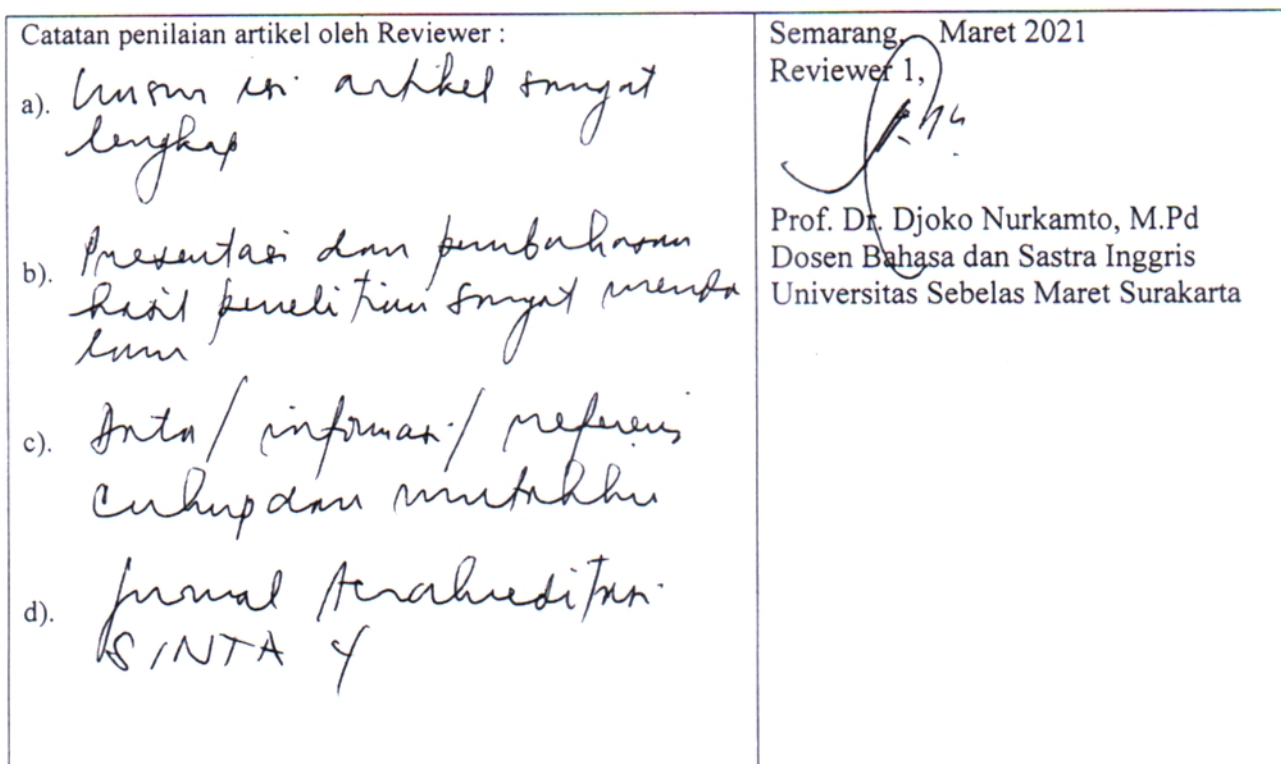 Catatan penilaian artikel oleh Reviewer :
a). Unsur isi artikel sangat
lengkap
b). Presentasi dan pembahasan
hasil penelitian sangat menda
lam
c). Data/ informasi/ referensi
cukup dan mutakhir
d). Jurnal terakreditasi
SINTA 4
Semarang, Maret 2021
Reviewer 1,
Prof. Dr. Djoko Nurkamto, M.Pd
Dosen Bahasa dan Sastra Inggris
Universitas Sebelas Maret Surakarta